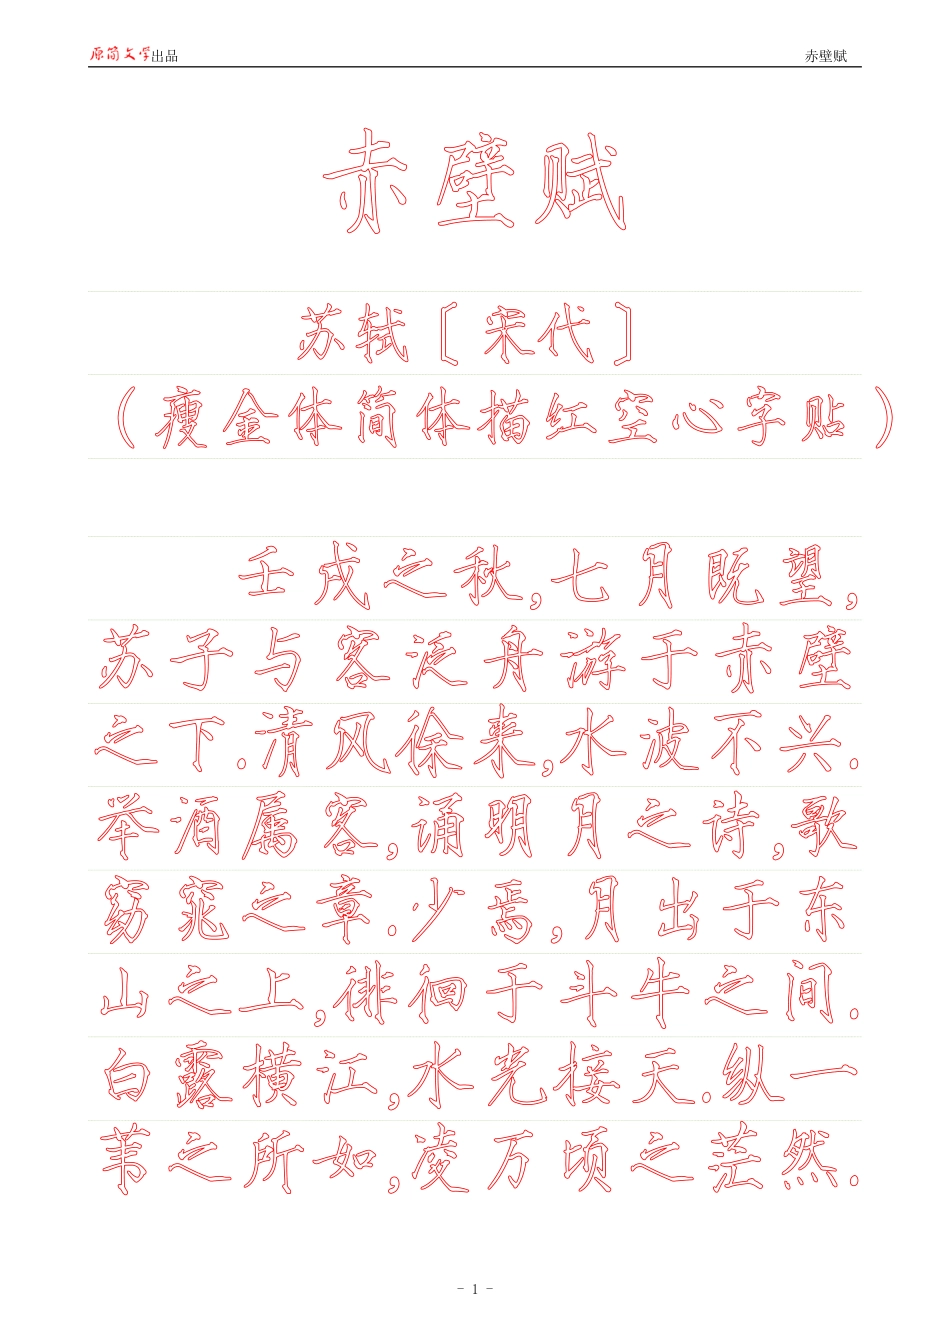 原简文学出品 赤壁赋
赤壁赋
苏轼〔宋代〕
（瘦金体简体描红空心字贴）
壬戌之秋,七月既望,
苏子与客泛舟游于赤壁
之下.清风徐来,水波不兴.
举酒属客,诵明月之诗,歌
窈窕之章.少焉,月出于东
山之上,徘徊于斗牛之间.
白露横江,水光接天.纵一
苇之所如,凌万顷之茫然.
- 1 -